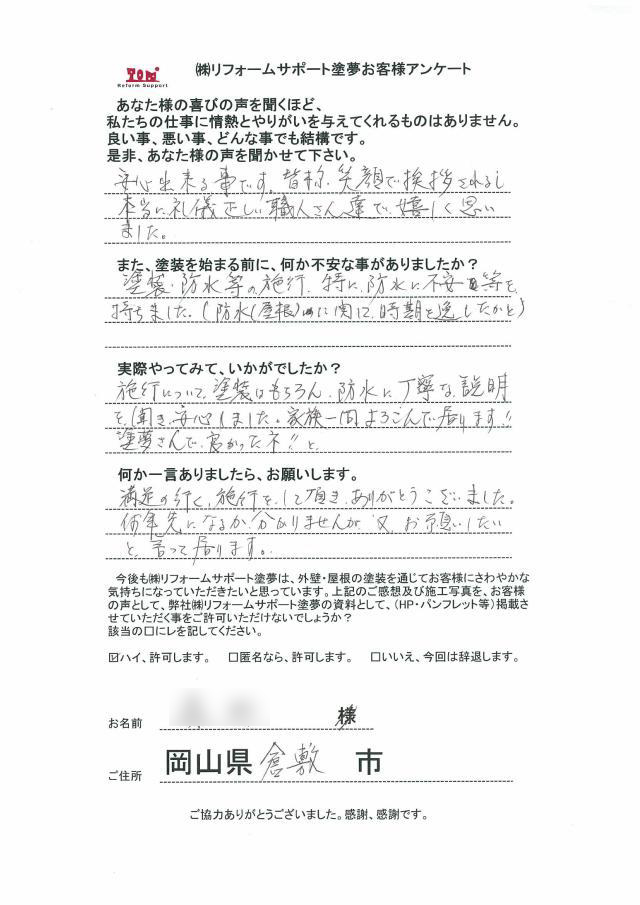 TOM
Reform Support
㈱リフォームサポート塗夢お客様アンケート
あなた様の喜びの声を聞くほど、
私たちの仕事に情熱とやりがいを与えてくれるものはありません。
良い事、悪い事、どんな事でも結構です。
是非、あなた様の声を聞かせて下さい。
安心出来る事です。皆様、笑顔で挨拶されるし
本当に礼儀正しい職人さん達で、嬉しく思い
ました。
また、塗装を始まる前に、何か不安な事がありましたか?
塗装・防水等の施行、特に、防水に不安等を
持ちました。(防水(屋根)に関して時期を逸したかと)
実際やってみて、いかがでしたか?
施行について、塗装はもちろん、防水に丁寧な説明
を聞き、安心しました。家族一同よろこんで居ります!!
塗夢さんで、良かったネ!!と、
何か一言ありましたら、お願いします。
満足の行く、施行を、して頂き、ありがとうございました。
何年先になるか、分かりませんが、又、お願いしたい
と、言って居ります。
今後も㈱リフォームサポート塗夢は、外壁・屋根の塗装を通じてお客様にさわやかな
気持ちになっていただきたいと思っています。上記のご感想及び施工写真を、お客様
の声として、弊社㈱リフォームサポート塗夢の資料として、(HP・パンフレット等)掲載さ
せていただく事をご許可いただけないでしょうか?
該当の□にレを記してください。
☑ハイ、許可します。 □匿名なら、許可します。 □いいえ、今回は辞退します。
お名前 様
ご住所 岡山県 倉敷 市
ご協力ありがとうございました。感謝、感謝です。